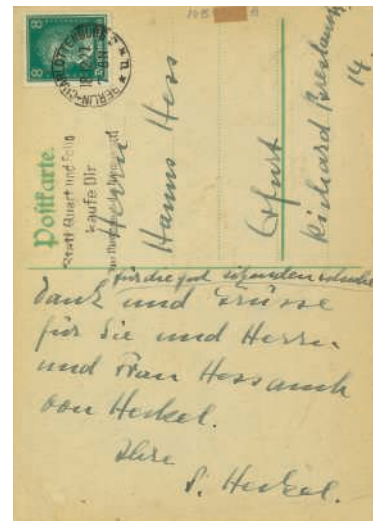 8
8
BERLIN-CHARLOTTENBURG
Postkarte.
Statt Quart und Folio
kaufe Dir
Herrn
Hanns Hess
Erfurt
Richard Breslaustr.
14.
für die gut sitzenden schuhe
Dank und Grüsse
für Sie und Herrn
und Frau Hess auch
von Heckel.
Ihre
S. Heckel.